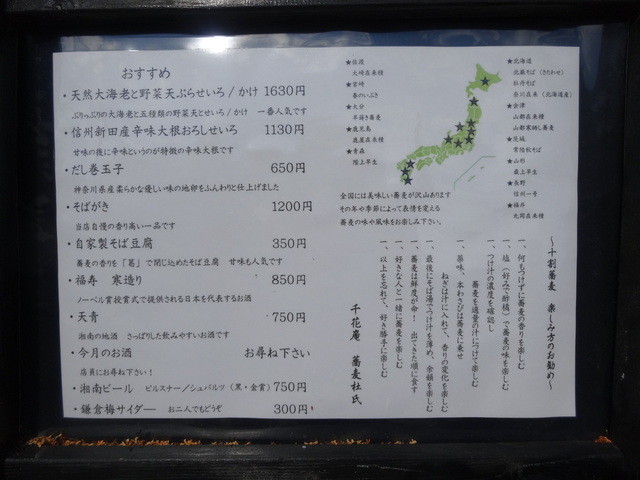 おすすめ
・天然大海老と野菜天ぷらせいろ/かけ 1630円
ぷりっぷりの大海老と五種類の野菜天とせいろ/かけ 一番人気です
・信州新田産辛味大根おろしせいろ 1130円
甘味の後に辛味というのが特徴の辛味大根です
・だし巻玉子 650円
神奈川県産柔らかな優しい味の地卵をふんわりと仕上げました
・そばがき 1200円
当店自慢の香り高い一品です
・自家製そば豆腐 350円
蕎麦の香りを「葛」で閉じ込めたそば豆腐 甘味も人気です
・福寿 寒造り 850円
ノーベル賞授賞式で提供される日本を代表するお酒
・天青 750円
湘南の地酒 さっぱりした飲みやすいお酒です
・今月のお酒 お尋ね下さい
店員にお尋ね下さい!
・湘南ビール ピルスナー/シュバルツ(黒・金賞)750円
・鎌倉梅サイダー お二人でもどうぞ 300円
★佐渡
大崎在来種
★宮崎
春のいぶき
★大分
早蒔き蕎麦
★鹿児島
鹿屋在来種
★青森
階上早生
★北海道
北海そば(きたわせ)
牡丹そば
奈川在来(北海道産)
★会津
山都在来種
山都寒晒し蕎麦
★茨城
常陸秋そば
★山形
最上早生
★長野
信州一号
★福井
丸岡在来種
全国には美味しい蕎麦が沢山あります
その年や季節によって表情を変える
蕎麦の味や風味をお楽しみ下さい。
~十割蕎麦 楽しみ方のお勧め~
一、何もつけずに蕎麦の香りを楽しむ
一、塩(好みで酢橘)で蕎麦の味を楽しむ
一、つけ汁の濃度を確認し
蕎麦を適量の汁につけて楽しむ
一、薬味、本わさびは蕎麦に乗せ
ねぎは汁に入れて、香りの変化を楽しむ
一、最後にそば湯でつけ汁を薄め、余韻を楽しむ
一、蕎麦は鮮度が命!出てきた頃に食す
一、好きな人と一緒に蕎麦を楽しむ
一、以上を忘れて、好き勝手に楽しむ
千花庵 蕎麦杜氏